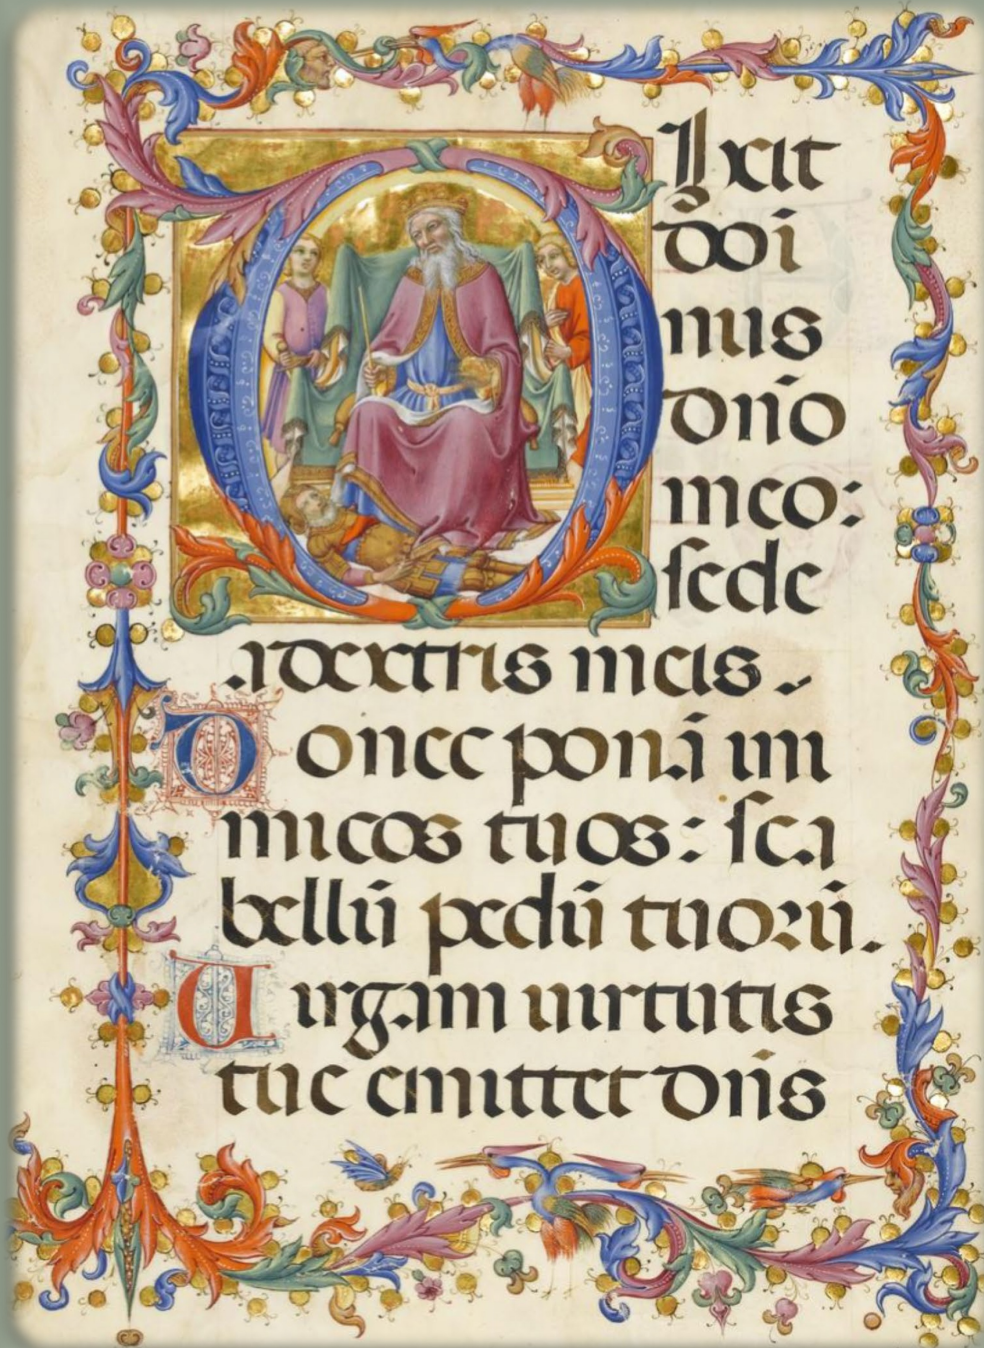 Dixit
doi
nus
dn̄o
meo:
sede
a dextris meis.
Donec ponā ini
micos tuos: sca
bellū pedū tuoꝝū.
Uirgam uirtutis
tue emittet dn̄s